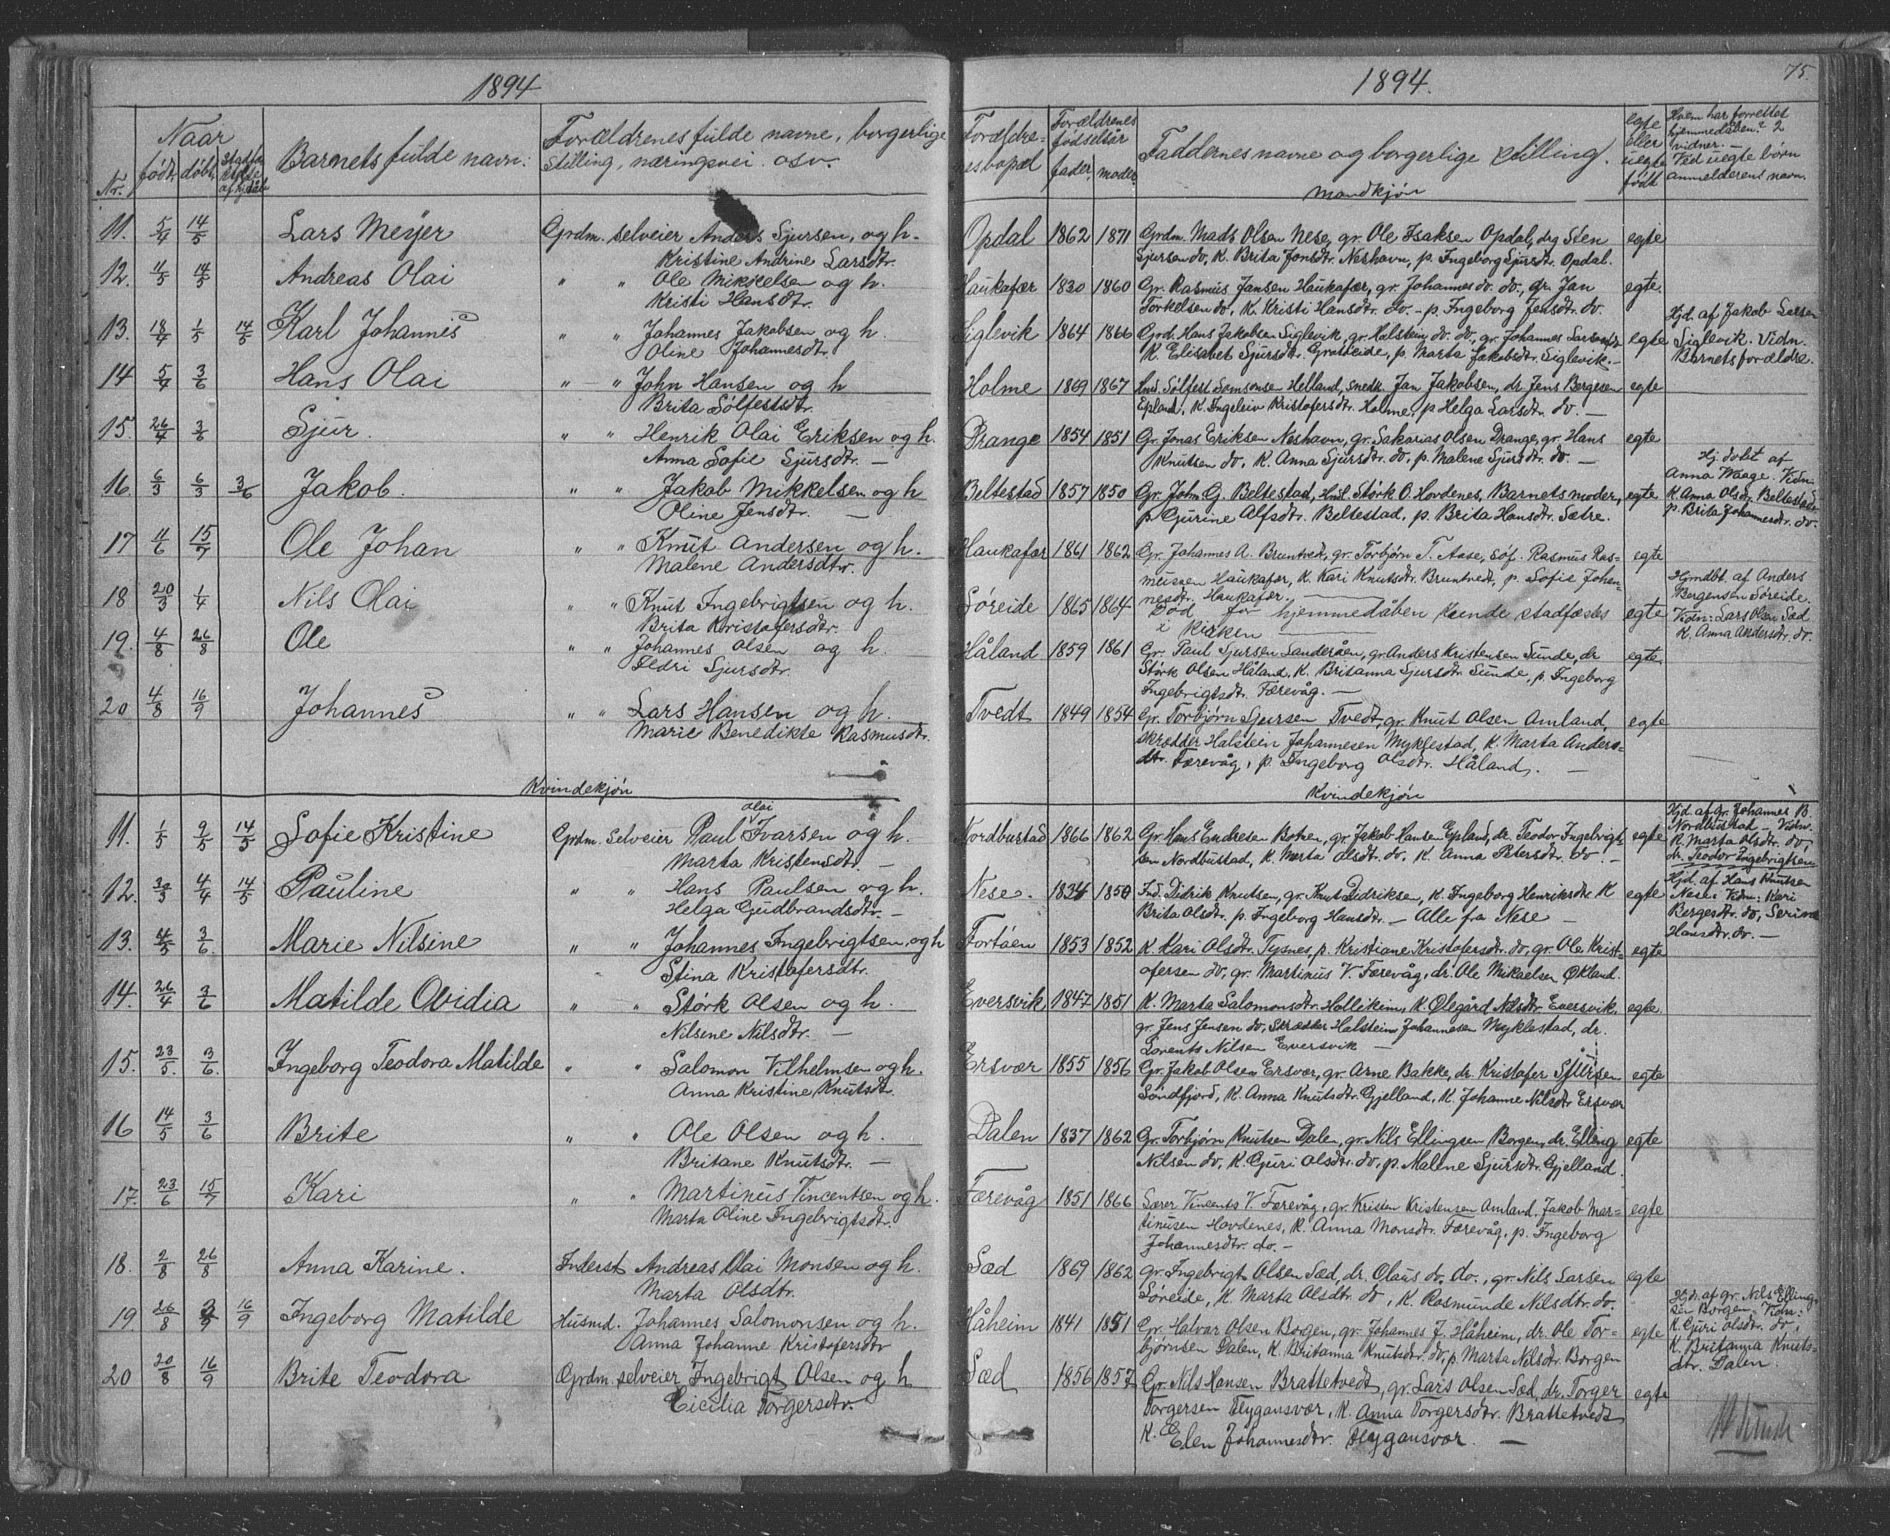 1894
Naar
Nr. født. døbt.
Barnets fulde navn:
Forældrenes fulde navne, borgerlige
stilling, næringsvei osv.
11. 5/4 14/5 Lars Meyer Grdm. selveier Anders Sjursen, og h.
Kristine Andrine Larsdtr.
12. 4/5 14/5 Andreas Olai " " Ole Mikkelsen og h.
Kristi Hansdtr.
13. 18/4 1/5 14/5 Karl Johannes " " Johannes Jakobsen og h.
Oline Johannesdtr.
14 5/4 3/6 Hans Olai " — " John Hansen og h
Brita Sølfestsdtr.
15. 26/4 3/6 Sjur. " " Henrik Olai Eriksen og h.
Anna Sofie Sjursdtr. —
16. 6/3 6/3 3/6 Jakob. " " Jakob Mikkelsen og h
Oline Jensdtr. —
17 4/6 15/7 Ole Johan " " Knut Andersen og h.
Malene Andersdtr.
18 20/3 1/4 Nils Olai " " Knut Ingebrigtsen og h.
Brita Kristofersdtr.
19. 4/8 26/8 Ole " " Johannes Olsen og h.
Eldri Sjursdtr.
20 4/8 16/9 Johannes " " Lars Hansen og h.
Marie Benedikte Rasmusdtr.
Kvindekjøn
olai
11. 1/5 9/5 14/5 Sofie Kristine Grdm. selveier Paul Ivarsen og h.
Marta Kristensdtr. —
12. 30/3 4/4 14/5 Pauline " " Hans Paulsen og h.
Helga Gudbrandsdtr. —
13. 4/5 3/6. Marie Nilsine " " Johannes Ingebrigtsen og h
Stina Kristofersdtr.
14. 26/4 3/6 Matilde Ovidia " " Størk Olsen og h.
Nilsene Nilsdtr. —
15. 23/5. 3/6. Ingeborg Teodora Matilde " " Salomon Vilhelmsen og h.
Anna Kristine Knutsdt.
16 14/5 3/6 Brite " " Ole Olsen og h.
Britane Knutsdtr. —
17. 23/6 15/7 Kari " " Martinus Vincentsen og h.
Marta Oline Ingebrigtsdtr.
18. 2/8 26/8 Anna Karine. Inderst Andreas Olai Monsen og h.
Marta Olsdtr.
19. 26/8 16/9 Ingeborg Matilde Husmd. Johannes Salomonsen og h.
Anna Johanne Kristofersdtr
20 20/8 16/9 Brite Teodora Grdm. selveier Ingebrigt Olsen og h
Cicilia Torgersdtr.
1894.
75.
Forældre-
nes bopæl
Forældrenes
fødselsår
fader. moder.
Faddernes navne og borgerlige stilling.
egte
eller
uegte
født
Hvem har forrettet
hjemmedåben? 2
vidner. —
Ved uegte børn
anmelderens navn.
Mandkjøn
Opdal 1862 1871 Grdm. Mads Olsen Nese, gr. Ole Isaksen Opdal, drg Sten egte
Sjursen do, K. Brita Jonsdtr. Neshavn, p. Ingeborg Sjursdt. Opdal.
Haukafær 1830 1860 Gr. Rasmus Jansen Haukafær, gr. Johannes do. do., gr. Jan egte.
Torkelsen do, K. Kristi Hansdtr. do. — p. Ingeborg Jensdtr. do.
Siglevik 1864 1866 Grd. Hans Jakobsen Siglevik, gr. Halstein do. do, gr. Johannes Larsen do egte
K. Elisabet Sjursdtr. Grutteide, p. Marta Jakobsdtr. Siglevik. —
Hjd. af Jakob Larsen
Siglevik. Vidn.
Barnets forældre.
Holme 1869 1867 Hus. Sølfest Samsonsen Helland, smedk. Jan Jakobsen, dr. Jens Bergesen egte
Epland, K. Ingeleiv Kristofersdtr. Holme, p Helga Larsdtr. do. —
Drange 1854 1851 Gr. Jonas Eriksen Neshavn, gr. Sakarias Olsen Drange, gr. Hans egte
Knutsen do, K. Anna Sjursdtr. do, p. Malene Sjursdtr. do. —
Beltestad 1857 1850 Gr. John G. Beltestad, Hus. Størk O. Hovdenes, Barnets moder, egte
p Gurine Alfsdtr. Beltestad, p. Brita Hansdtr. Sætre.
Hj. døbt af
Anna Waage. Vidn.
K. Anna Olsdtr. Beltestad
p. Brita Johannesdtr. do.
Haukafær 1861 1862 Gr. Johannes A. Bruntvedt, gr. Torbjørn T. Aase, søf. Rasmus Ras- egte
mussen Haukafær, K. Kari Knutsdtr. Bruntvedt, p. Sofie Johan-
nesdtr. Haukafær. —
Søreide 1865 1864 Død før hjemmedåben kunde stadfæstes egte
i kirken —
Hjmdbt. af Anders
Bergensen Søreide.
Vidn: Lars Olsen Sæd
K. Anna Andersdtr. do.
Håland 1859 1861 Gr. Paul Sjursen Sanderåen, gr Anders Kristensen Sunde, dr egte.
Størk Olsen Håland, K. Britanna Sjursdtr. Sunde, p. Ingeborg
Ingebrigtsdtr. Færevåg. —
Tvedt 1849 1854 Gr. Torbjørn Sjursen Tvedt, gr. Knut Olsen Amland, egte
skrædder Halstein Johannesen Myklestad, K. Marta Anders-
dtr. Færevåg, p. Ingeborg Olsdtr. Håland. —
Kvindekjøn
Nordbustad 1866 1862 Gr. Hans Endresen Botnen, gr. Jakob Hansen Epland, dr. Teodor Ingebrigt- egte
sen Nordbustad, K. Marta Olsdtr. do, K. Anna Petersdtr. do. —
Hjd. af gr. Johannes B.
Nordbustad — Vidn.
K. Marta Olsdtr. do,
dr. Teodor Ingebrigtsen
Nese. 1834 1850 Ind. Didrik Knutsen, gr. Knut Didriksen, K. Ingeborg Henriksdtr. K egte
Brita Olsdtr. p Ingeborg Hansdtr. — Alle fra Nese —
Hjd. af Hans Knutsen
Nese. Vidn: Kari
Bergesdtr. do, Serina
Hansdtr. do. —
Fortøen 1853 1852 K Kari Olsdtr. Tysnes, p. Kristiane Kristofersdtr. do, gr. Ole Krist- egte
ofersen do, gr. Martinus V. Færevåg, dr. Ole Mikaelsen Økland.
Eversvik 1847 1851 K. Marta Salomonsdtr. Halleheim, K. Ølegård Nilsdtr. Eversvik, egte
gr. Jens Jensen do, skrædder Halstein Johannesen Myklestad, dr.
Lorents Nilsen Eversvik —
Ersvær 1855 1856 Gr. Jakob Olsen Ersvær, gr. Arne Bakke, dr. Kristofer Sjursen egte
Søndfjord, K. Anna Knutsdtr. Gjelland, K. Johanne Nilsdtr Ersvær
Dalen 1837 1862 Gr. Torbjørn Knutsen Dalen, gr. Nils Ellingsen Borgen, dr. Elling egte
Nilsen do, K. Guri Olsdtr. do, p. Malene Sjursdtr. Gjelland.
Færevåg 1851 1866 Særer Vincents V. Færevåg, gr. Kristen Kristensen Amland, Jakob Mar- egte
tinusen Hovdenes, K. Anna Monsdtr. Færevåg, p. Ingeborg
Johannesdtr. do. —
Sæd 1869 1862 gr. Ingebrigt Olsen Sæd, dr. Olaus do. do., gr. Nils Larsen egte
Søreide, K. Marta Olsdtr. do, K. Rasmunde Nilsdtr. do.
Håheim 1841 1851 Gr. Halvar Olsen Bogen, gr. Johannes J. Håheim, dr. Ole Tor- egte
bjørnsen Dalen, K. Britanna Knutsdtr. do, p. Marta Nilsdtr. Borgen
Hjd. af gr. Nils Elling-
sen Borgen — Vidn:
K. Guri Olsdtr. do,
K. Britanna Knuts-
dtr. Dalen.
Sæd 1856 1857 Gr. Nils Hansen Brattetvedt, gr. Lars Olsen Sæd, dr. Torger egte
Torgersen Flygansvær, K. Anna Torgersdtr. Brattetvedt
K. Elen Johannesdtr. Flygansvær. —